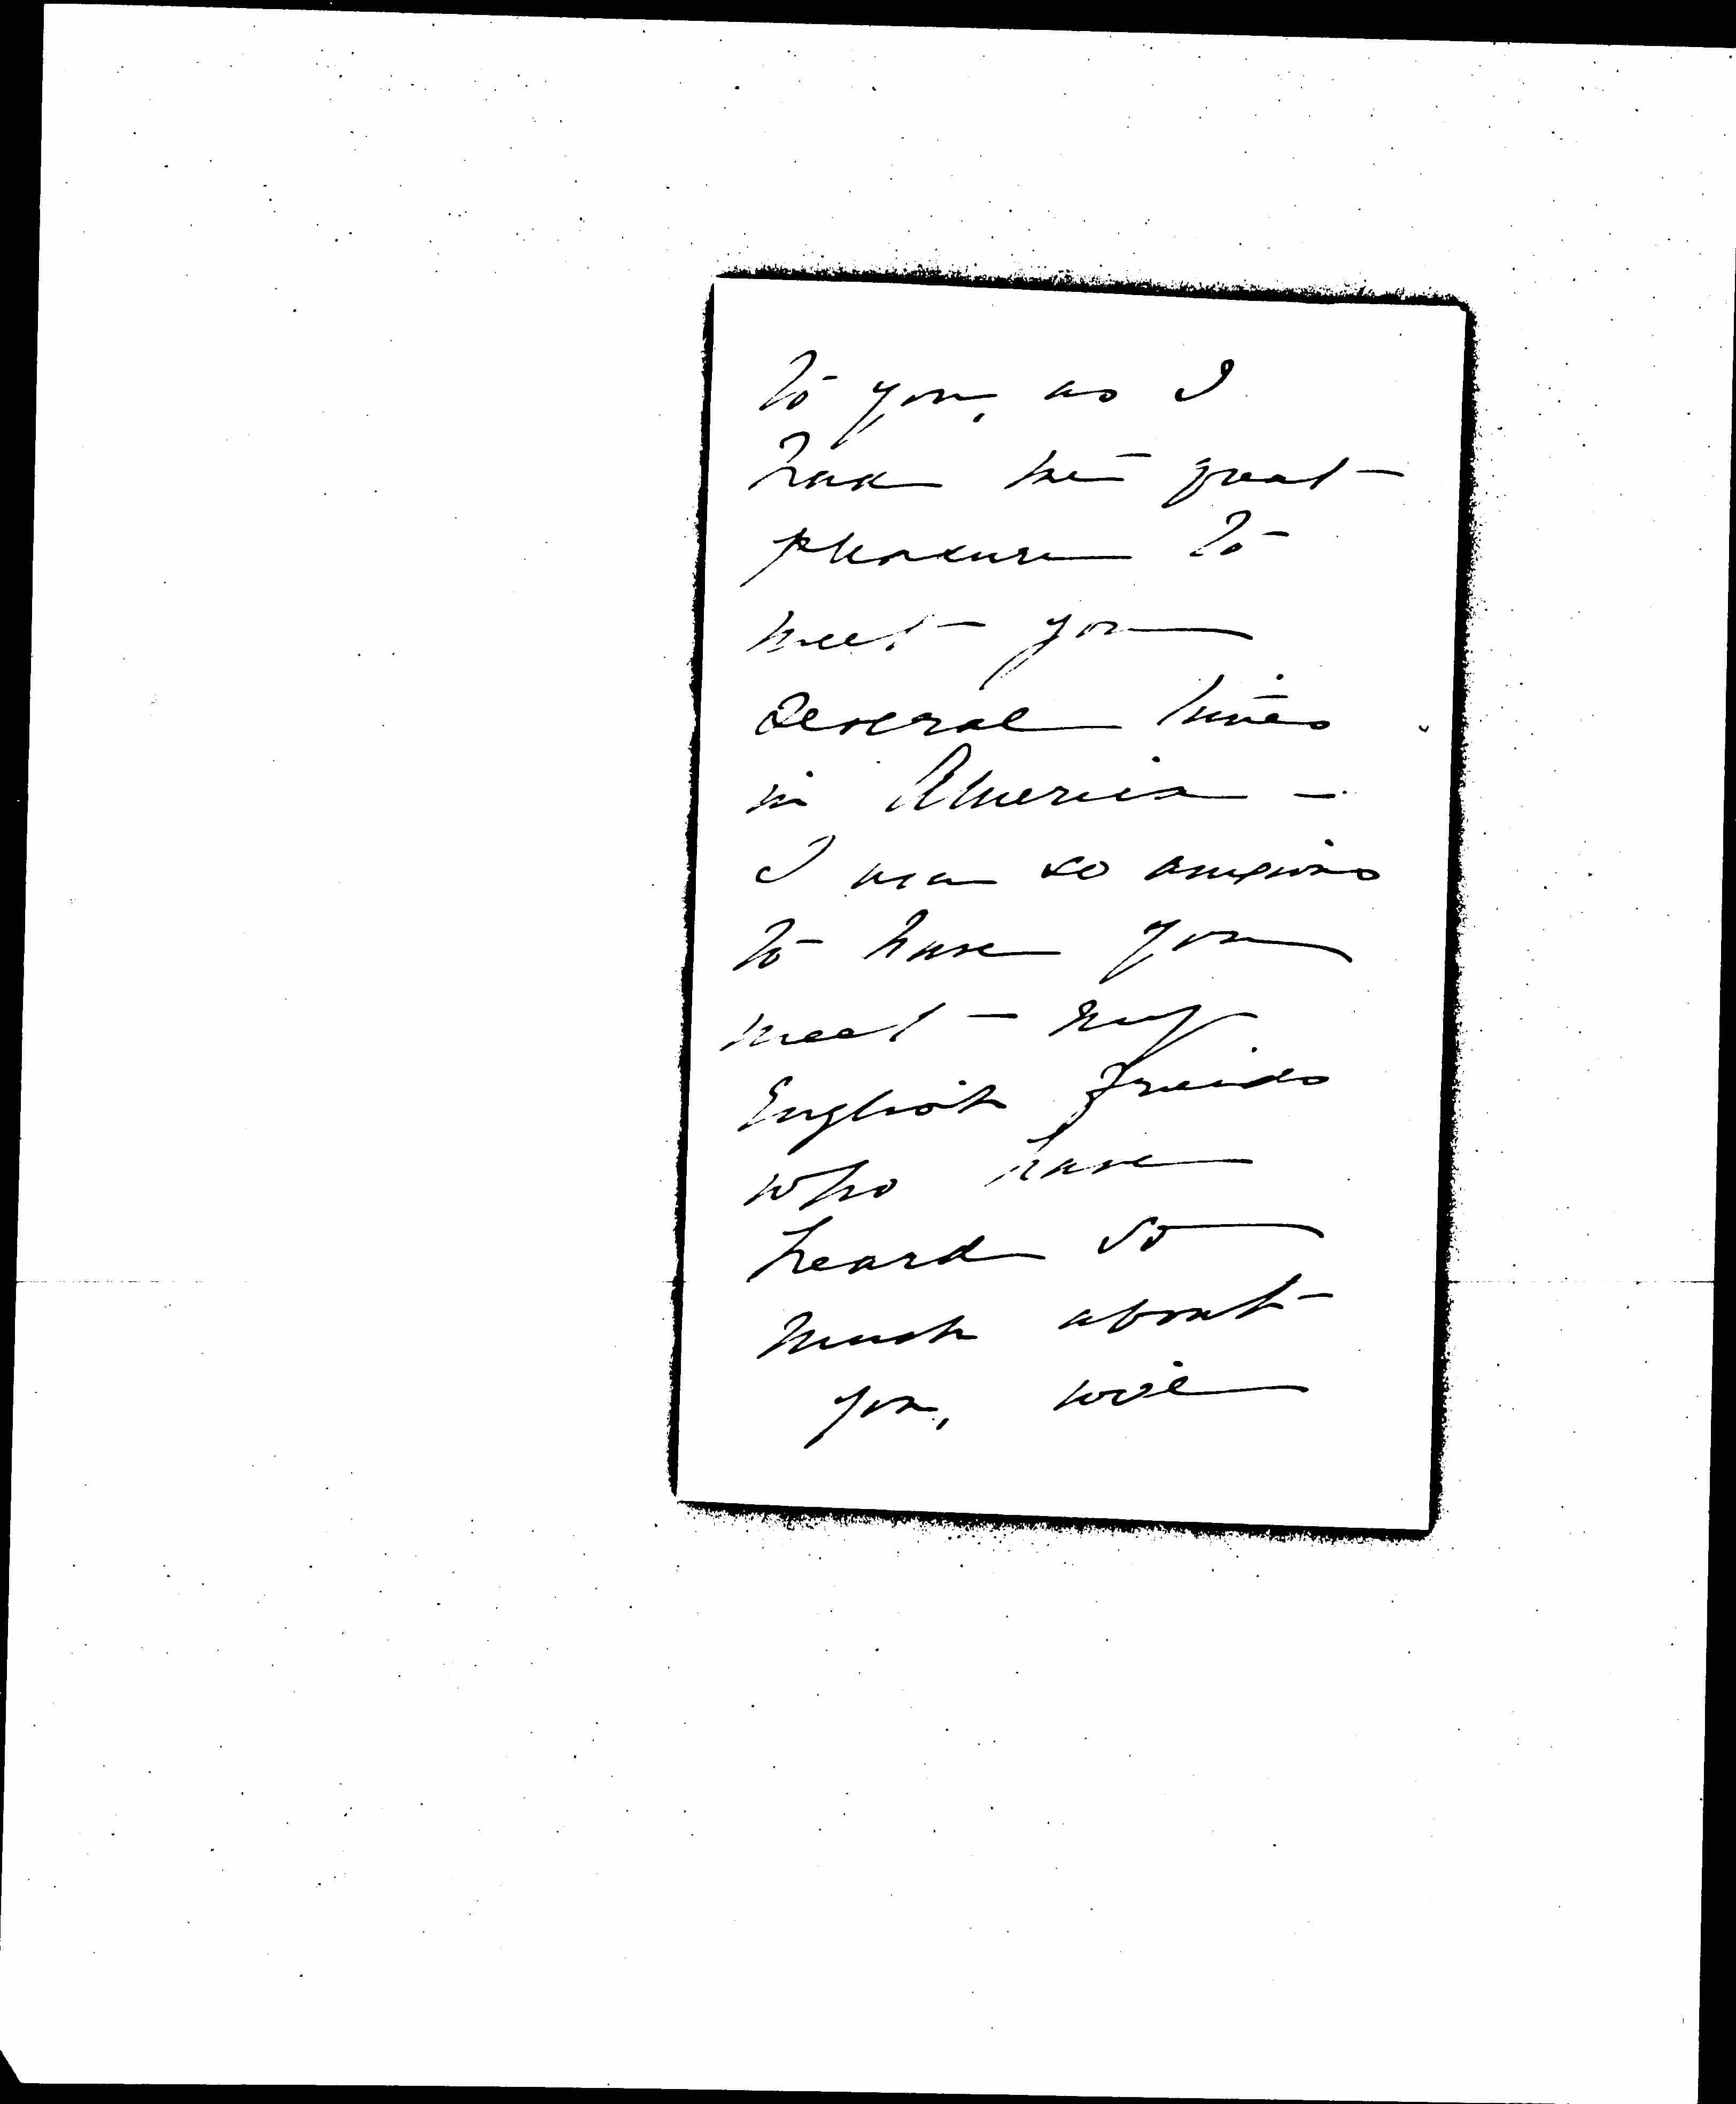 to you, as I
had the great
pleasure to
meet you
several times
in America -
I am so anxious
to have you
meet my
English friends
who have
heard so
much about
you, will